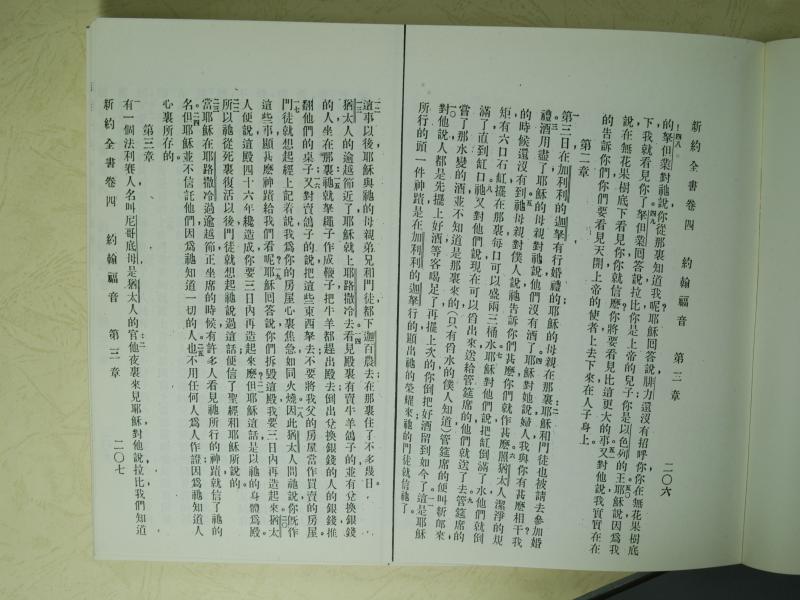 新約全書卷四 約翰福音 第二章 二〇六
的拏但業對祂說你從那裏知道我呢耶穌回答說腓力還沒有招呼你你在無花果樹底
下我就看見你了拏但業回答說拉比你是上帝的兒子你是以色列的王耶穌說因爲我
說在無花果樹底下看見你你就信麼你將要看見比這更大的事又對他說我實實在在
的告訴你們你們要看見天開上帝的使者上去下來在人子身上
第二章
第三日在加利利的迦拏有行婚禮的耶穌的母親在那裏耶穌和門徒也被請去參加婚
禮酒用盡了耶穌的母親對祂說他們沒有酒了耶穌對她說婦人我與你有甚麼相干我
的時候還沒有到祂母親對僕人說祂告訴你們甚麼你們就作甚麼照猶太人潔淨的規
矩有六口石缸擺在那裏每口可以盛兩三桶水耶穌對他們說把缸倒滿了水他們就倒
滿了直到缸口祂又對他們說現在可以舀出來送給管筵席的他們就送了去管筵席的
嘗了那水變的酒並不知道是那裏來的（只有舀水的僕人知道）管筵席的便叫新郎來
對他說人都是先擺上好酒等客喝足了再擺上次的你倒把好酒留到如今了這是耶穌
所行的頭一件神蹟是在加利利的迦拏行的顯出祂的榮耀來祂的門徒就信祂了
這事以後耶穌與祂的母親弟兄和門徒都下迦百農去在那裏住了不多幾日
猶太人的逾越節近了耶穌就上耶路撒冷去看見殿裏有賣牛羊鴿子的並有兌換銀錢
的人坐在那裏祂就拏繩子作成鞭子把牛羊都趕出殿去倒出兌換銀錢的人的銀錢推
翻他們的桌子又對賣鴿子的說把這些東西拏去不要將我父的房屋當作買賣的房屋
門徒就想起經上記着說我爲你的房屋心裏焦急如同火燒因此猶太人問祂說你旣作
這些事顯甚麼神蹟給我們看呢耶穌回答說你們拆毀這殿我要三日內再造起來猶太
人便說這殿四十六年纔造成你要三日內再造起來麼但耶穌這話是以祂的身體爲殿
所以祂從死裏復活以後門徒就想起祂說過這話便信了聖經和耶穌所說的
當耶穌在耶路撒冷過逾越節正坐席的時候有許多人看見祂所行的神蹟就信了祂的
名但耶穌並不信託他們因爲祂知道一切的人也不用任何人爲人作證因爲祂知道人
心裏所存的
第三章
有一個法利賽人名叫尼哥底母是猶太人的官他夜裏來見耶穌對他說拉比我們知道
新約全書卷四 約翰福音 第三章 二〇七